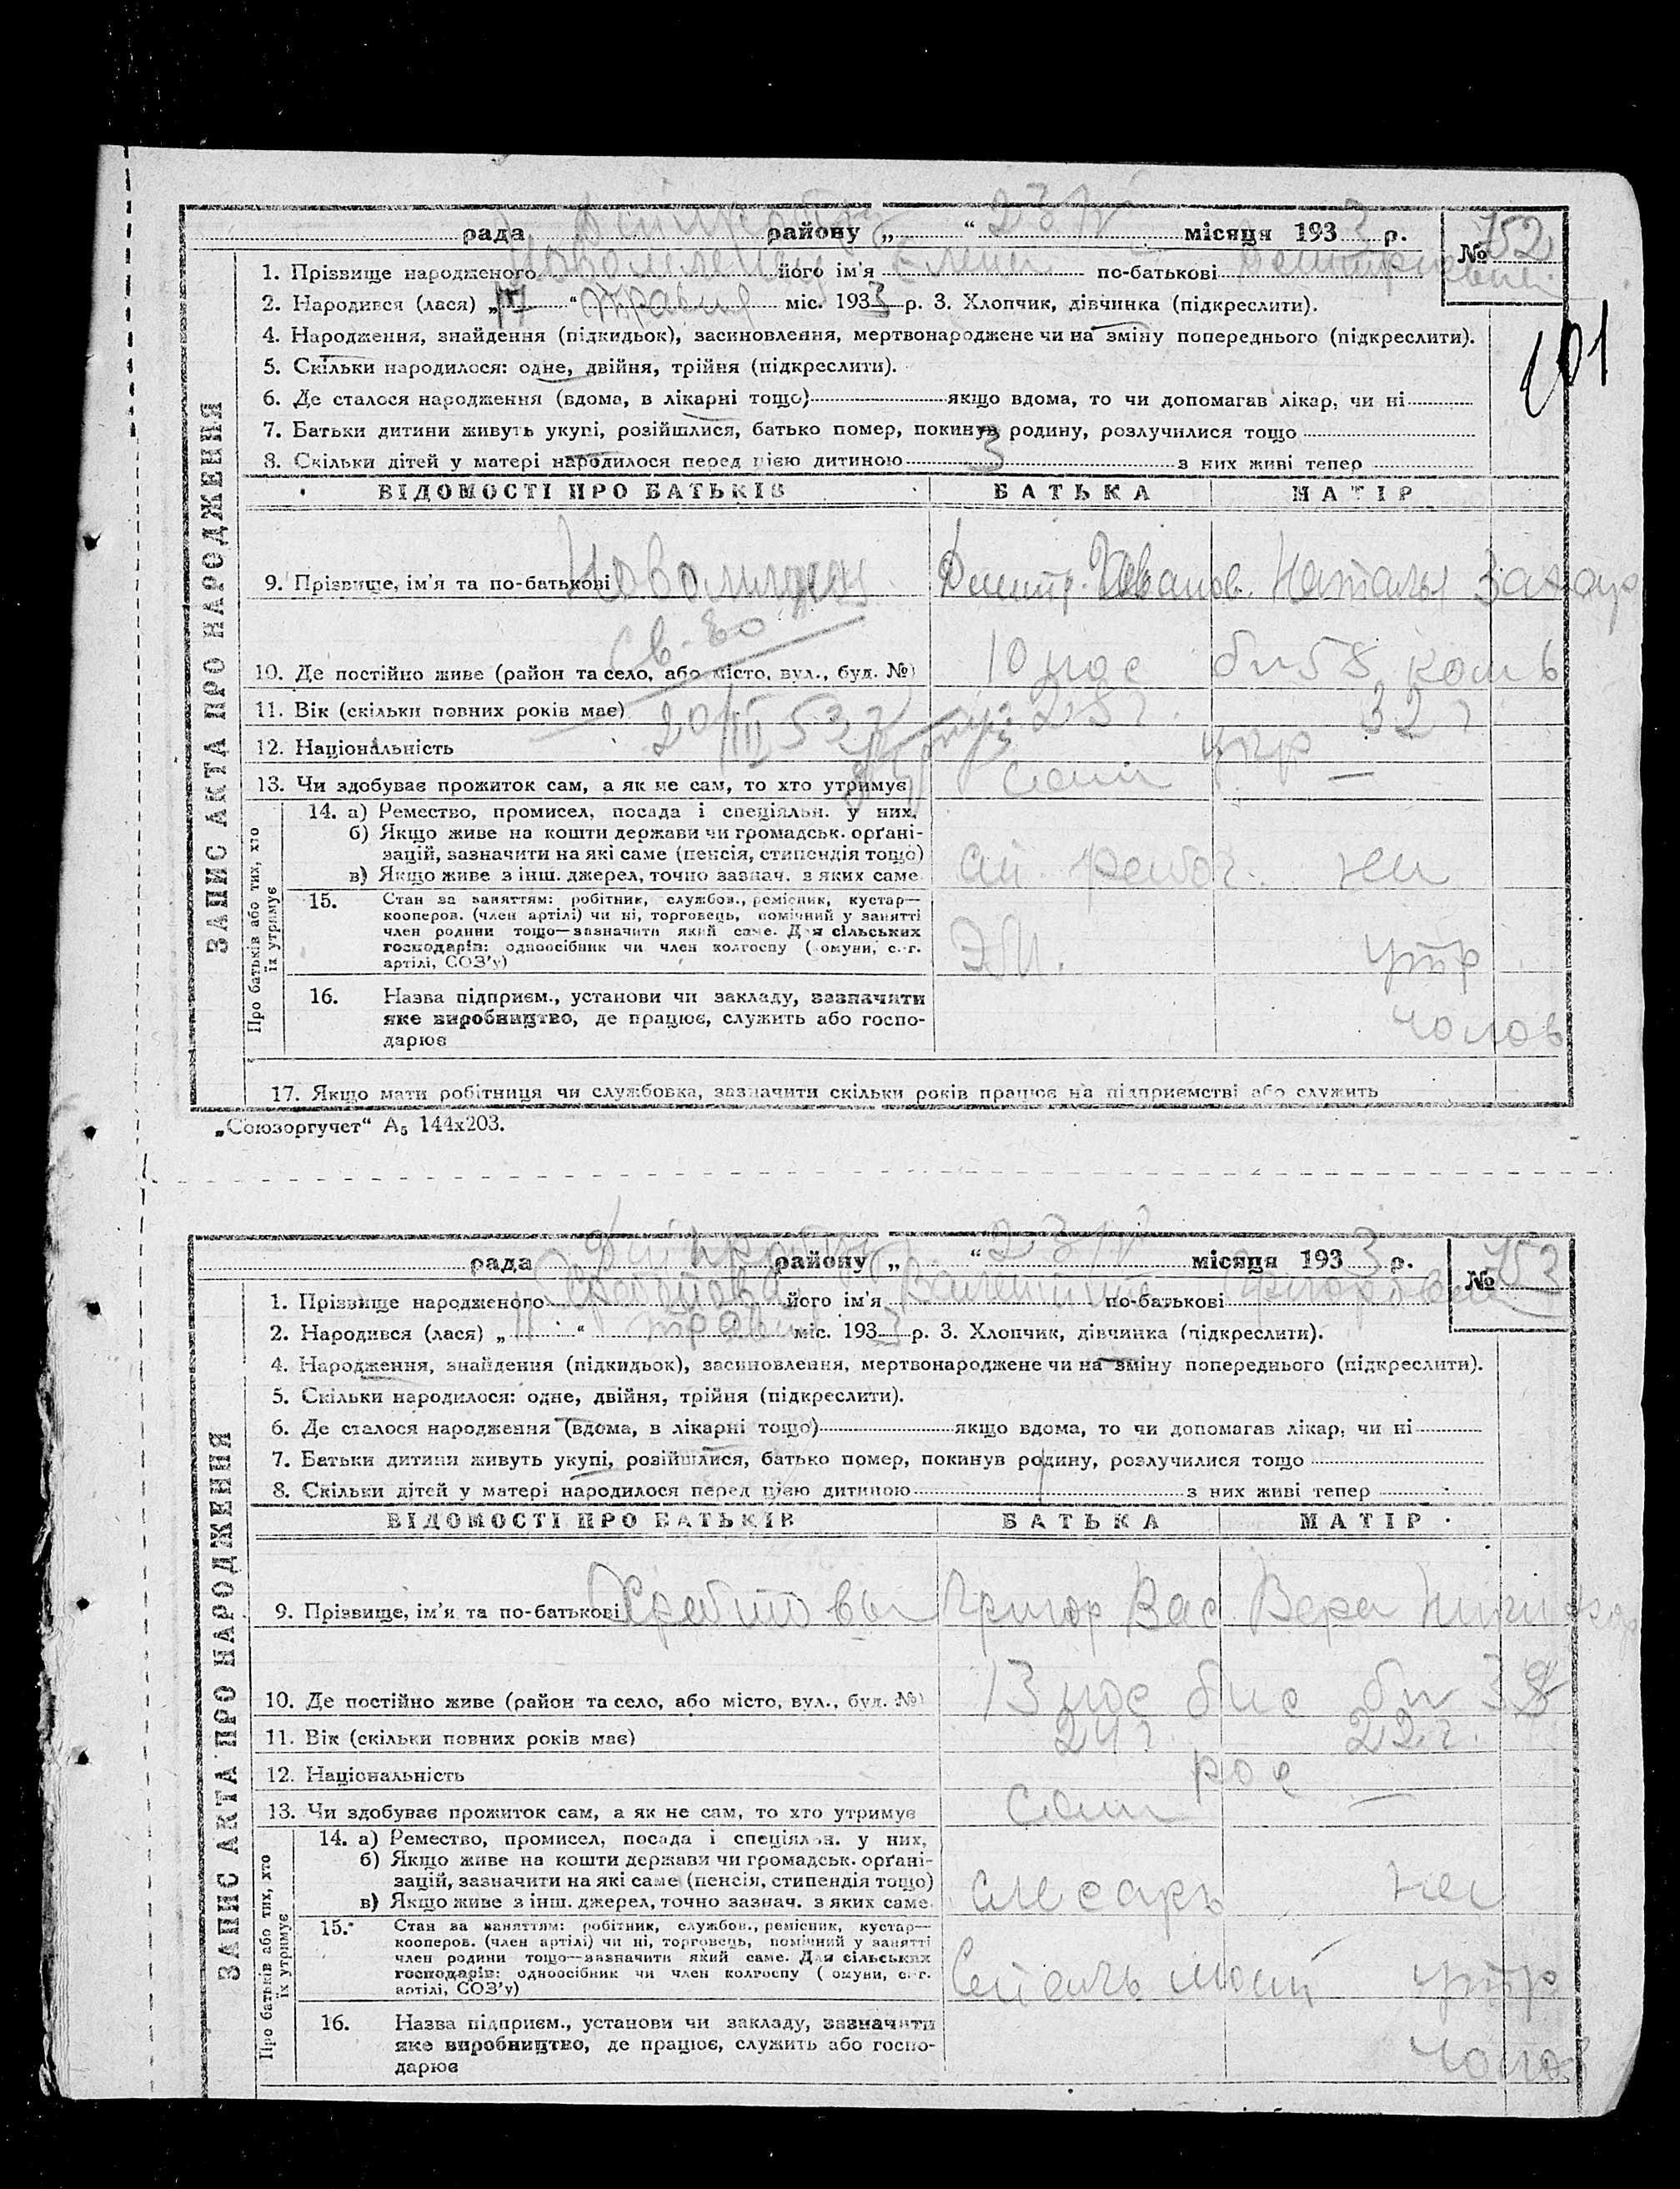 рада району „ “ 23/V місяця 1933 р. № 752
1. Прізвище народженого його ім'я Елена по-батькові
2. Народився (лася) „ “ травня міс. 1933 р. 3. Хлопчик, дівчинка (підкреслити).
101
4. Народження, знайдення (підкидьок), засиновлення, мертвонароджене чи на зміну попереднього (підкреслити).
5. Скільки народилося: одне, двійня, трійня (підкреслити).
6. Де сталося народження (вдома, в лікарні тощо) якщо вдома, то чи допомагав лікар, чи ні
7. Батьки дитини живуть укупі, розійшлися, батько помер, покинув родину, розлучилися тощо
8. Скільки дітей у матері народилося перед цією дитиною 3 з них живі тепер
ЗАПИС АКТА ПРО НАРОДЖЕННЯ
ВІДОМОСТІ ПРО БАТЬКІВ БАТЬКА МАТІР
9. Прізвище, ім'я та по-батькові Дмитр. Иванов. Наталья Захар
св-во
10. Де постійно живе (район та село, або місто, вул., буд. №) 10 пос б п 58 ком 6
11. Вік (скільки повних років має) 32 г
20/III 53 г
12. Національність укр
13. Чи здобуває прожиток сам, а як не сам, то хто утримує сам —
Про батьків або тих, хто їх утримує
14. а) Ремество, промисел, посада і спеціяльн. у них.
б) Якщо живе на кошти держави чи громадськ. орґані-
зацій, зазначити на які саме (пенсія, стипендія тощо)
в) Якщо живе з інш. джерел, точно зазнач. з яких саме
15. Стан за заняттям: робітник, службов., ремісник, кустар—
кооперов. (член артілі) чи ні, торговець, помічний у занятті
член родини тощо—зазначити який саме. Для сільських
господарів: одноосібник чи член колгоспу (комуни, с.-г.
артілі, СОЗ'у)
утр
16. Назва підприєм., установи чи закладу, зазначити
яке виробництво, де працює, служить або госпо-
дарює
чолов
17. Якщо мати робітниця чи службовка, зазначити скільки років працює на підприємстві або служить
„Союзоргучет“ А₅ 144х203.
рада району „ “ 23/V місяця 1933 р. № 753
1. Прізвище народженого його ім'я по-батькові
2. Народився (лася) „11“ травня міс. 1933 р. 3. Хлопчик, дівчинка (підкреслити).
4. Народження, знайдення (підкидьок), засиновлення, мертвонароджене чи на зміну попереднього (підкреслити).
5. Скільки народилося: одне, двійня, трійня (підкреслити).
6. Де сталося народження (вдома, в лікарні тощо) якщо вдома, то чи допомагав лікар, чи ні
7. Батьки дитини живуть укупі, розійшлися, батько помер, покинув родину, розлучилися тощо
8. Скільки дітей у матері народилося перед цією дитиною 1 з них живі тепер
ЗАПИС АКТА ПРО НАРОДЖЕННЯ
ВІДОМОСТІ ПРО БАТЬКІВ БАТЬКА МАТІР
9. Прізвище, ім'я та по-батькові Григор Вас Вера
10. Де постійно живе (район та село, або місто, вул., буд. №) 13 пос
11. Вік (скільки повних років має) 24 г. 22 г.
12. Національність рос
13. Чи здобуває прожиток сам, а як не сам, то хто утримує сам —
Про батьків або тих, хто їх утримує
14. а) Ремество, промисел, посада і спеціяльн. у них,
б) Якщо живе на кошти держави чи громадськ. орґані-
зацій, зазначити на які саме (пенсія, стипендія тощо)
в) Якщо живе з інш. джерел, точно зазнач. з яких саме
слесарь
15. Стан за заняттям: робітник, службов., ремісник, кустар—
кооперов. (член артілі) чи ні, торговець, помічний у занятті
член родини тощо—зазначити який саме. Для сільських
господарів: одноосібник чи член колгоспу (комуни, с.-г.
артілі, СОЗ'у)
утр
16. Назва підприєм., установи чи закладу, зазначити
яке виробництво, де працює, служить або госпо-
дарює
чолов